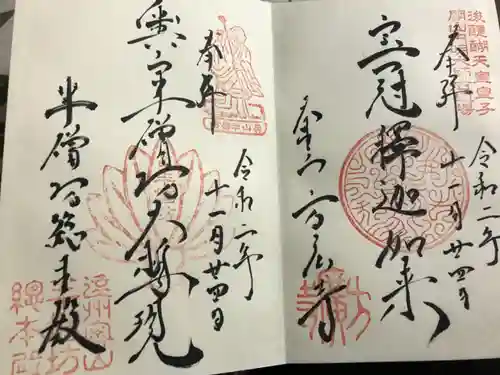 後醍醐天皇皇子
奉拝
宝冠釋迦如来
奥山方広寺
令和二年
十一月廿四日
奉拝
奥山半僧坊大権現
半僧坊総本殿
令和二年
十一月廿四日
遠州奥山
半僧坊
總本殿